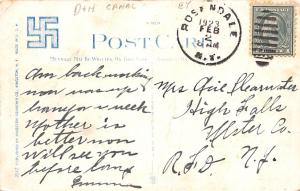 D+H CANAL
POST CARD
ROSENDALE
1923
FEB
2
AM
N.Y.
Am back working
now was up
home for a week
Mother is
better now
will see you
before long
Emma
Mrs Abie Shearwater
High Falls
Ulster Co.
R.F.D N.Y.